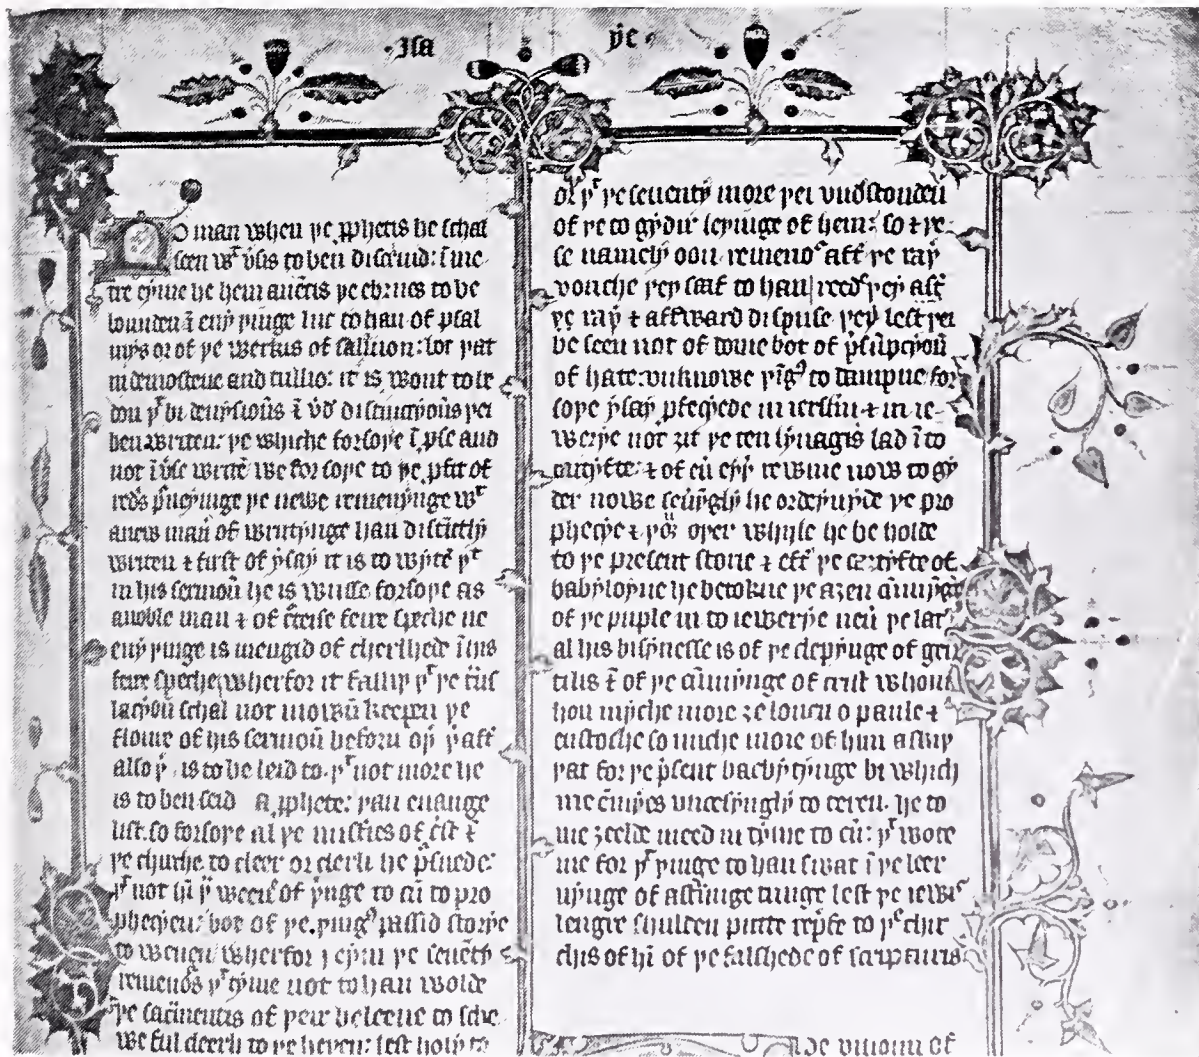 Isa ye
O man when þe ꝓphetis he schal
seen wt v̉sis to ben discriuid: sum
tre eyme he hem anentis þe ebrues to be
bounden ĩ eny þinge lijc to hau of psal
mys or of þe werkus of salomon: bot þat
in demostene and tullio: it is wont to be
don þt bi deuysioũs ĩ vnd distinccyoũs þei
ben writen: þe whiche forsoþe ĩ pse and
not ĩ v̉se write we forsoþe to þe ꝓfit of
reders pueyinge þe newe remeuynge wt
anew maner of writynge han distinctly
writen ⁊ first of ysay it is to wyte þt
in his sermoũ he is wijse forsoþe as
anoble man ⁊ of cleerse feire speche ne
eny þinge is mengid of cherlhede ĩ his
feire speche wherfor it falliþ þt þe trans
lacyoũ schal not mowẽ keepen þe
floure of his sermoũ beforn oþ þ aft
also þis is to be leid to þt not more he
is to ben seid a ꝓphete: þan euange
list. so forsoþe al þe misties of crist ⁊
þe chirche. to cleer or cleerli he pursuede:
þt not him þu weene of þinge to cũ to pro
phecyen: bot of þe þinges passid storye
to weuen wherfor j eyme þe seuenty
remenours þt tyme not to han wolde
þe sacramentis of þeir beleeue to sche
we ful cleerli to þe heþen: lest holy to
or þt þe seuenty more þei vndstonden
of þe to gydir seyinge of hem: so ⁊ þe
se namely oon remenour aft þe ray
vouche þey saaf to hau reders þey aft
þe ray ⁊ aftward dispise þey lest þei
be seen not of dome bot of presumpcyoũ
of hate: vnknowe þinges to dampne for
soþe ysay ꝓfecyede in ierslm ⁊ in ie
werye not ȝit þe ten lynagis lad ĩ to
caityfte: ⁊ of eũ eyþ rewme now to gy
der nowe seuyngly he ordeynyde þe pro
phecye ⁊ oþer whijle he be holde
to þe present storie ⁊ eft þe caitifte of
babyloyne he betokne þe aȝen cũmynge
of þe puple in to iewerye neũ þe lat
al his bisynesse is of þe clepynge of gen
tilis ⁊ of þe cũmynge of crist whom
hou myche more ȝe louen o paule ⁊
eustoche so miche more of him askiþ
þat for þe psent bacbytynge bi which
me enmyes vncesyngly to teren. he to
me ȝeelde meed in tyme to cũ: þt wote
me for þt þinge to han swat ĩ þe leer
nynge of astraunge tunge lest þe iewis
lengre shulden putte reprofe to þe chir
chis of hĩ of þe falshede of scripturis
þe visioun of